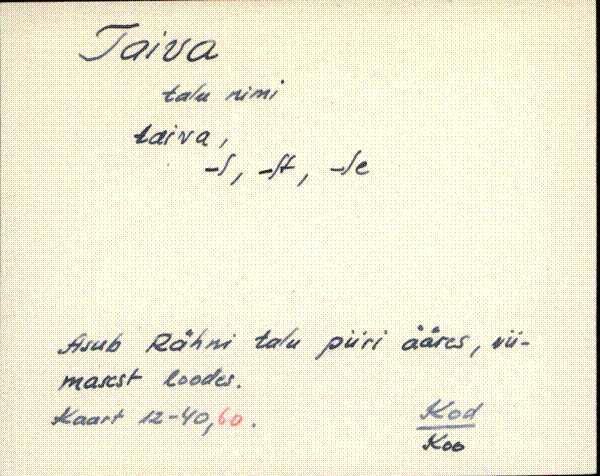 Taiva
talu nimi
taiva,
-s, -st, -se
Asub Rähni talu piiri ääres, vii-
masest loodes.
Kaart 12-40,60.
Kod
Koo